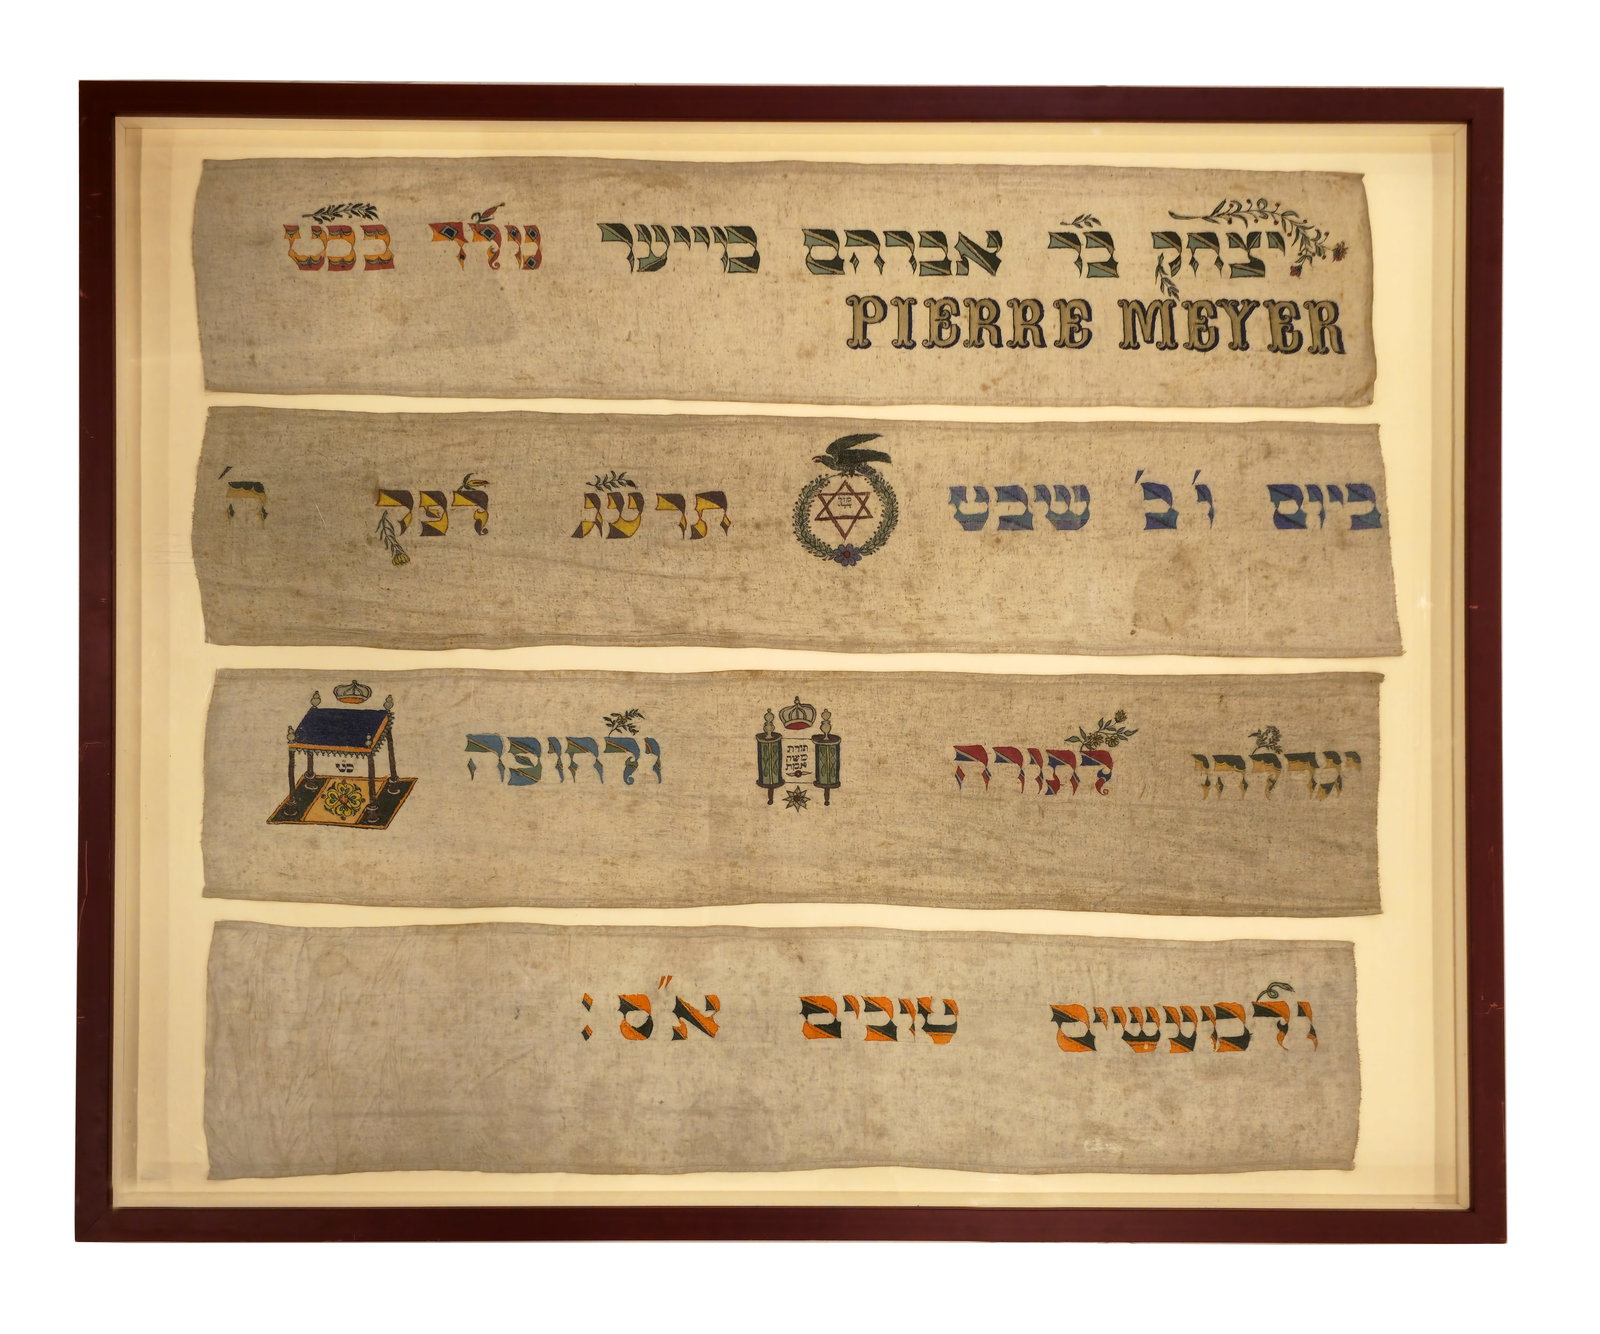 יצחק בר אברהם מייער נולד במט
PIERRE MEYER
ביום ו' ב' שבט תרעג לפק ה'
יגדלהו לתורה
תורת
משה
אמת
ולחופה
מט
ולמעשים טובים א"ס: